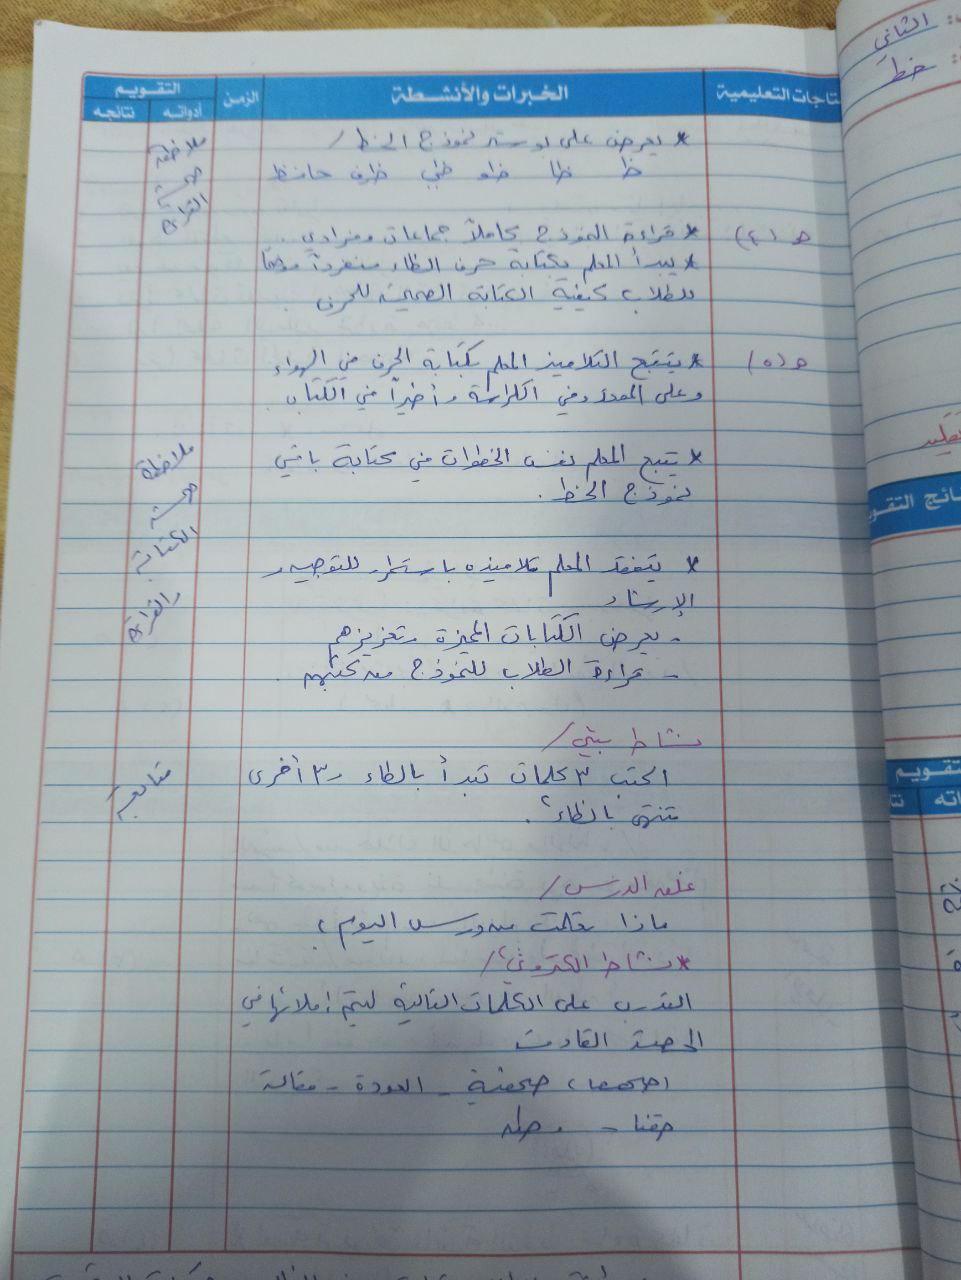 الثاني
خط
التقويم
الخبرات والأنشطة
الزمن
أدواته
نتائجه
تاجات التعليمية
* يعرض على بوستر نموذج الخط /
ظ ظا ظو ظي ظرف حافظ
ملاحظة
صحة
القراءة
هـ (٤)
* قراءة النموذج كاملاً جماعات وفرادي ..
* يبدأ المعلم بكتابة حرف الظاء منفرداً موضحاً
للطلاب كيفية الكتابة الصحيحة للحرف
هـ (٥)
* يتتبع التلاميذ المعلم بكتابة الحرف في الهواء
وعلى المقعد وفي الكراسة وأخيراً في الكتاب.
* يتبع المعلم نفس الخطوات في كتابة باقي
نموذج الخط .
ملاحظة
صحة
الكتابة
والقراءة
* يتفقد المعلم تلاميذه باستمرار للتوجيه و
الإرشاد
- يعرض الكتابات المميزة وتعزيزهم
- قراءة الطلاب للنموذج من كتبهم .
نشاط بيتي /
اكتب ٣ كلمات تبدأ بالظاء و٣ أخرى
تنتهي بالظاء ؟
متابعة
غلق الدرس /
ماذا تعلمت من درس اليوم ؟
* نشاط الكتروني /
التدرب على الكلمات التالية ليتم إملائها في
الحصة القادمة
صحفية - العودة - مقالة
نائج التقو
تقويم
اته
نتا